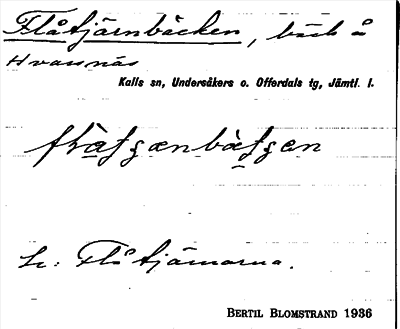 Flåtjärnbäcken, bäck å
Hvassnäs
Kalls sn, Undersåkers o. Offerdals tg, Jämtl. l.
Se: Flåtjärnarna.
BERTIL BLOMSTRAND 1936